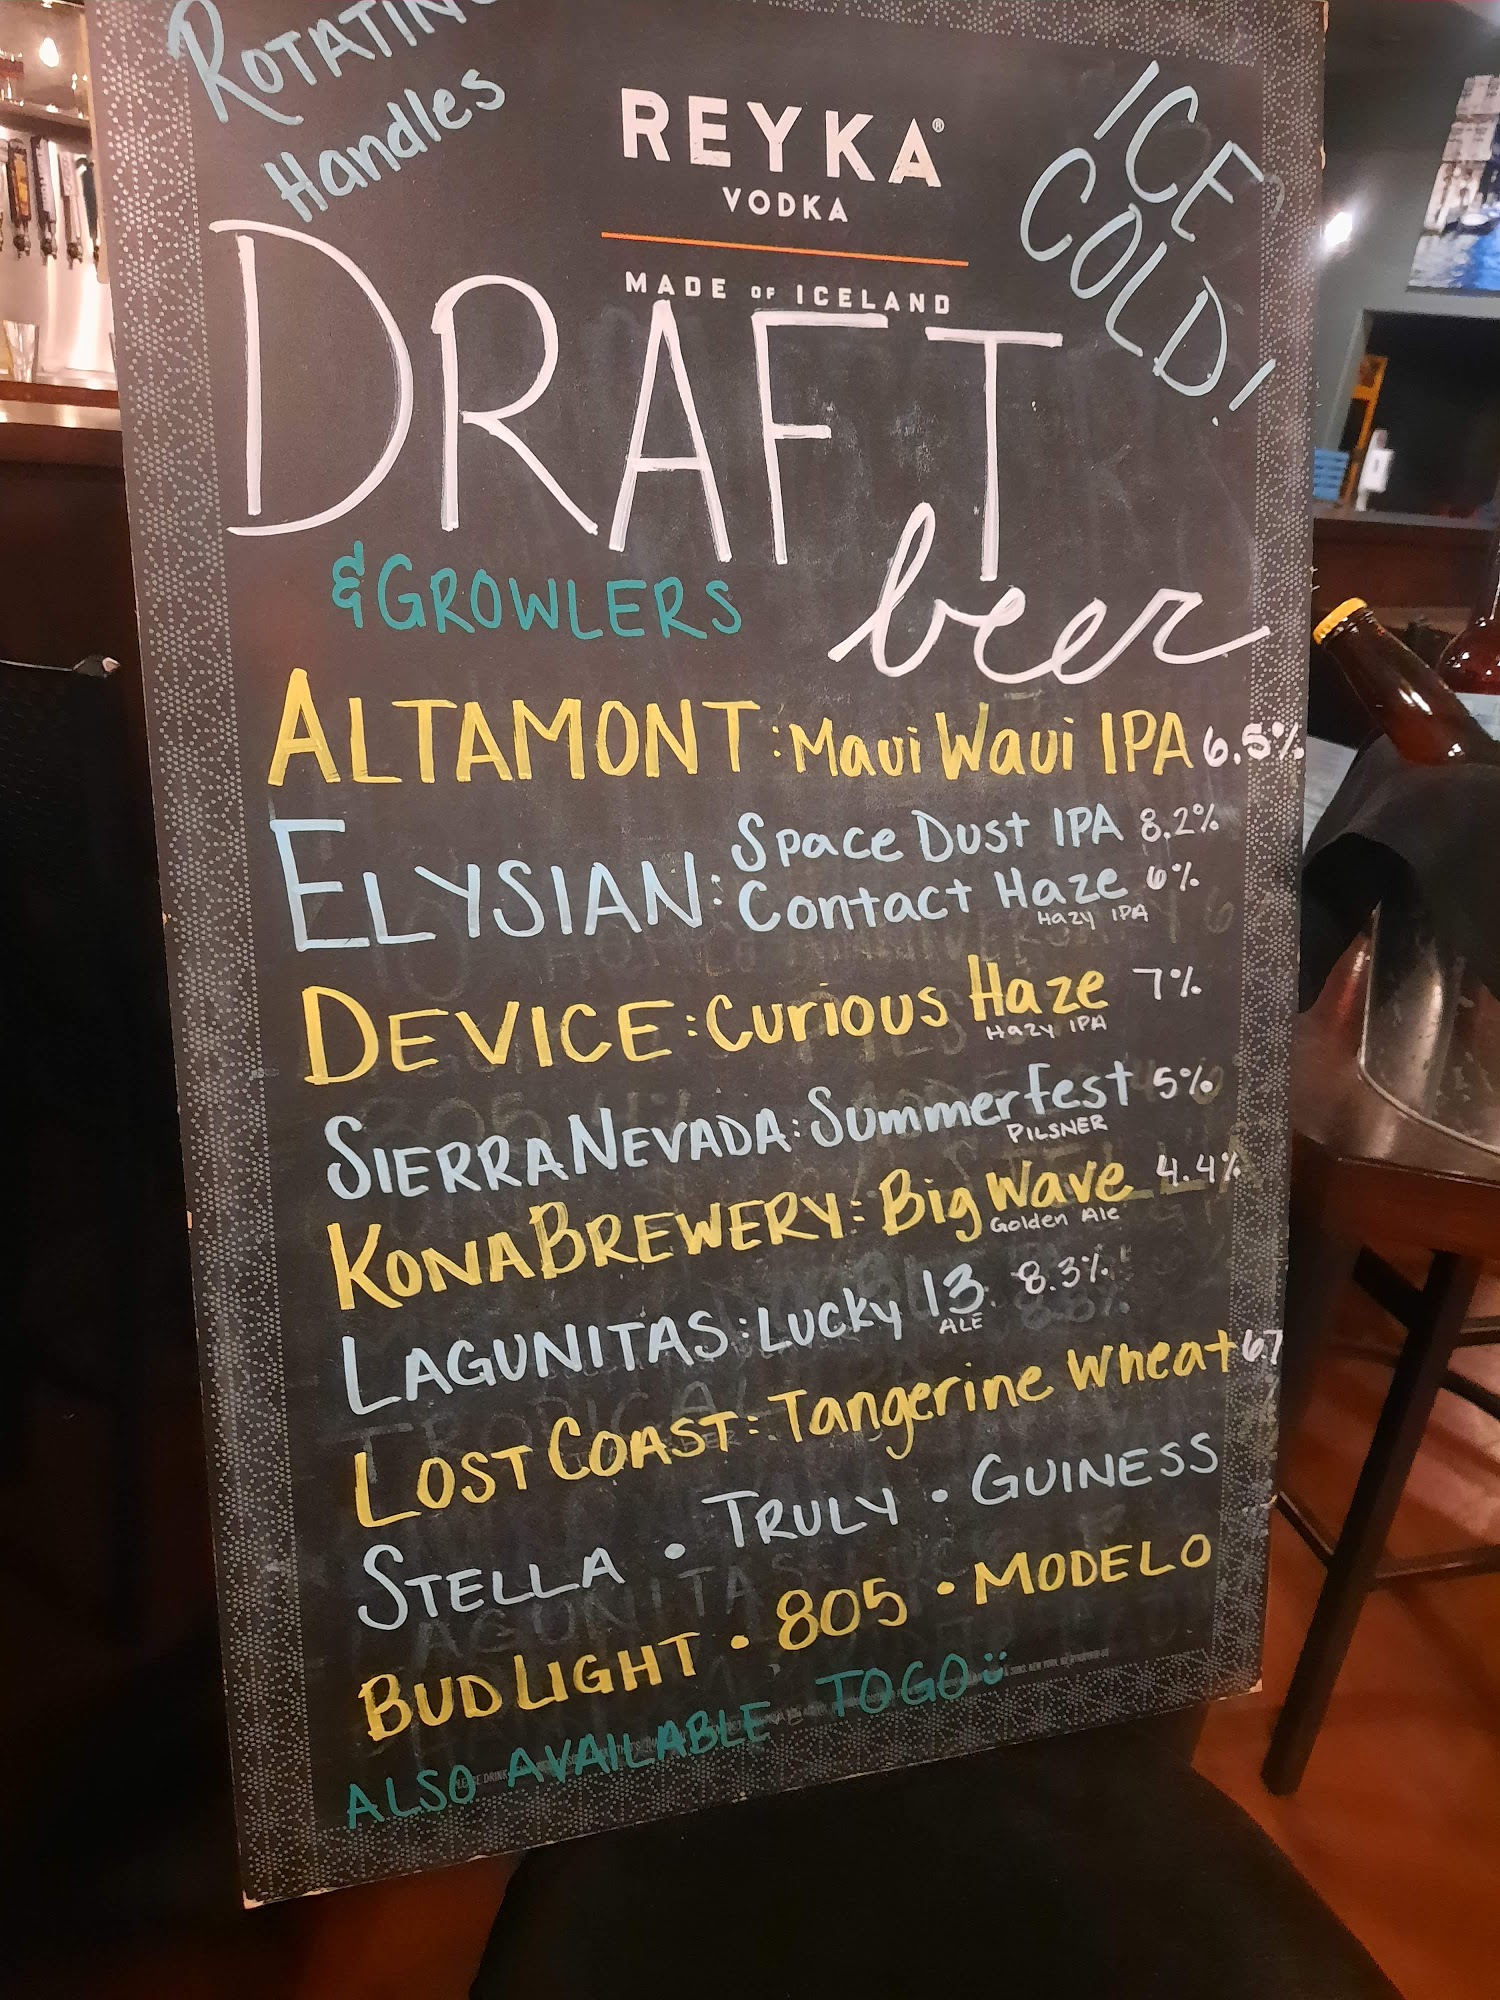 ROTATING
Handles
REYKA®
VODKA
MADE OF ICELAND
ICE
COLD!
DRAFT
beer
& GROWLERS
ALTAMONT: Maui Waui IPA 6.5%
ELYSIAN: Space Dust IPA 8.2%
Contact Haze 6%
HAZY IPA
DEVICE: Curious Haze 7%
HAZY IPA
SIERRA NEVADA: Summerfest 5%
PILSNER
KONA BREWERY: Big Wave 4.4%
Golden Ale
LAGUNITAS: Lucky 13 8.3%
ALE
LOST COAST: Tangerine Wheat
STELLA • TRULY • GUINESS
BUD LIGHT • 805 • MODELO
ALSO AVAILABLE TO GO